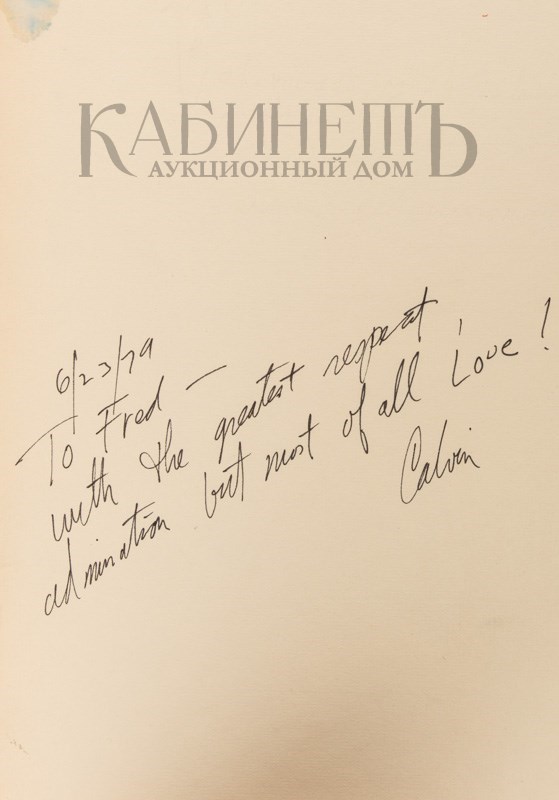 КАБИНЕТЪ
АУКЦИОННЫЙ ДОМ
6/23/79
To Fred —
with the greatest respect,
admiration but most of all Love!
Calvin